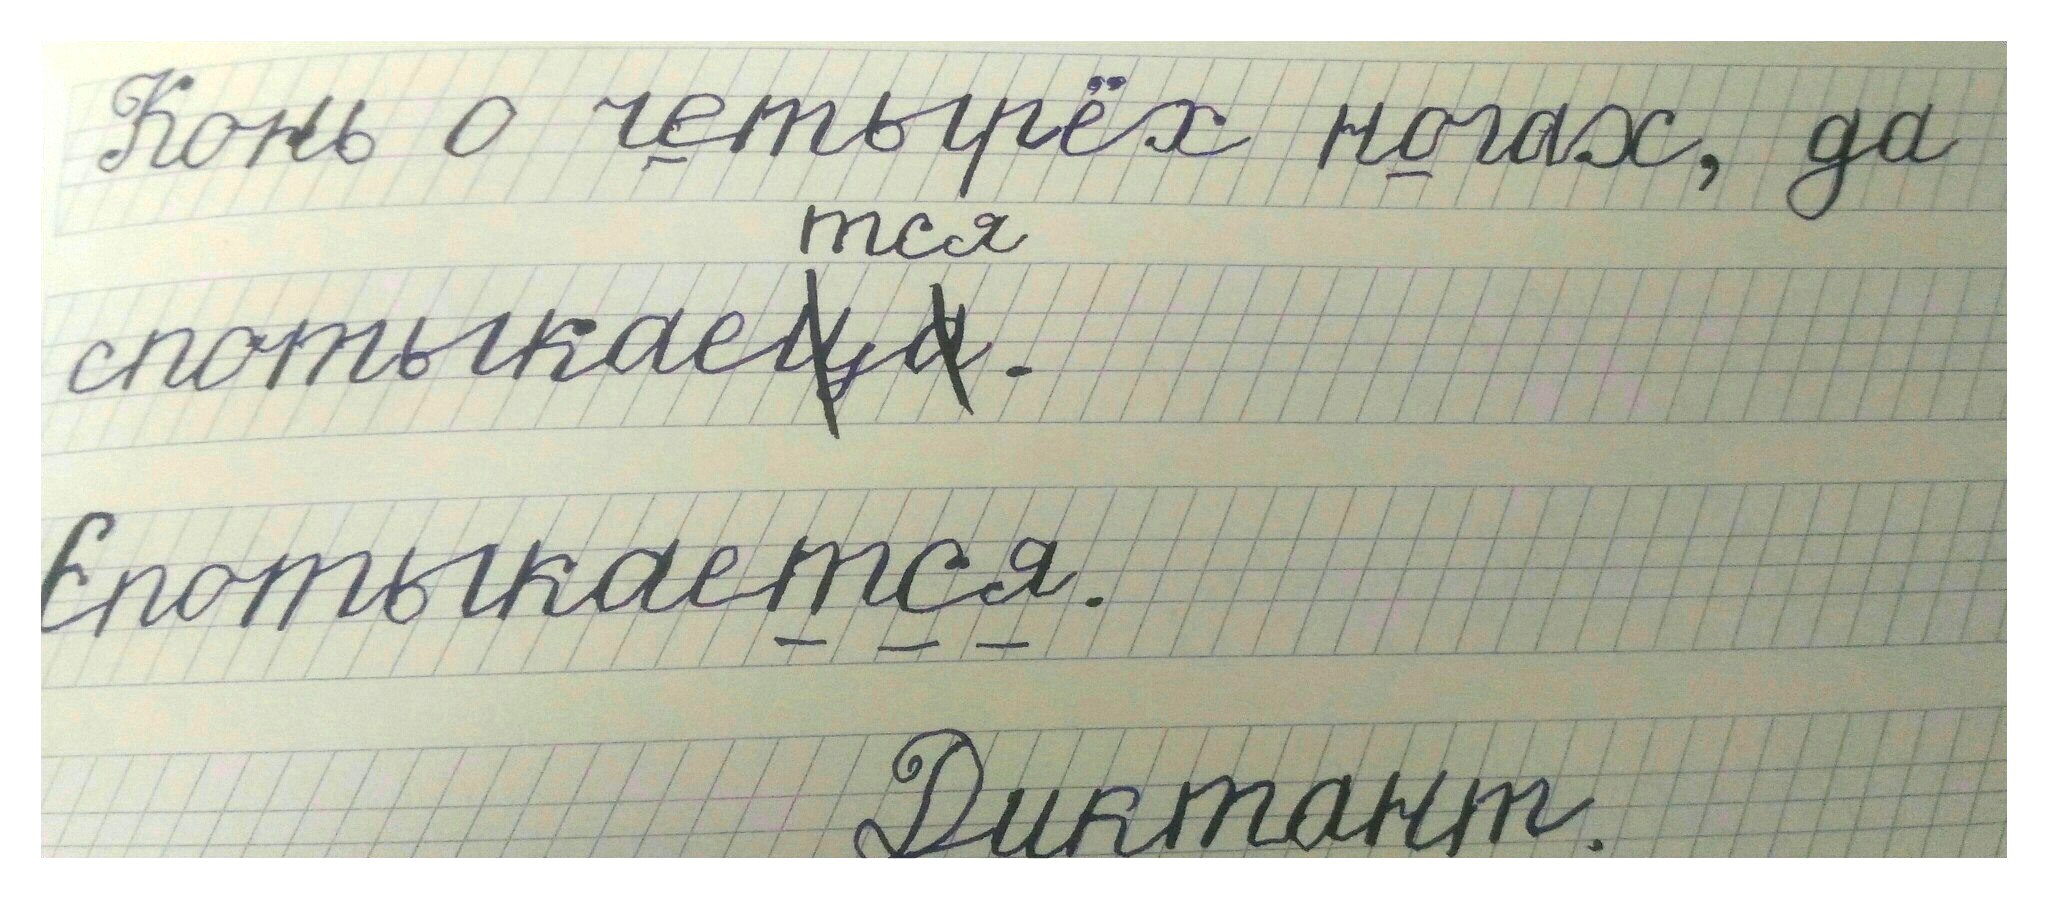 Конь о четырёх ногах, да
тся
спотыкаеца.
Спотыкается.
Диктант.